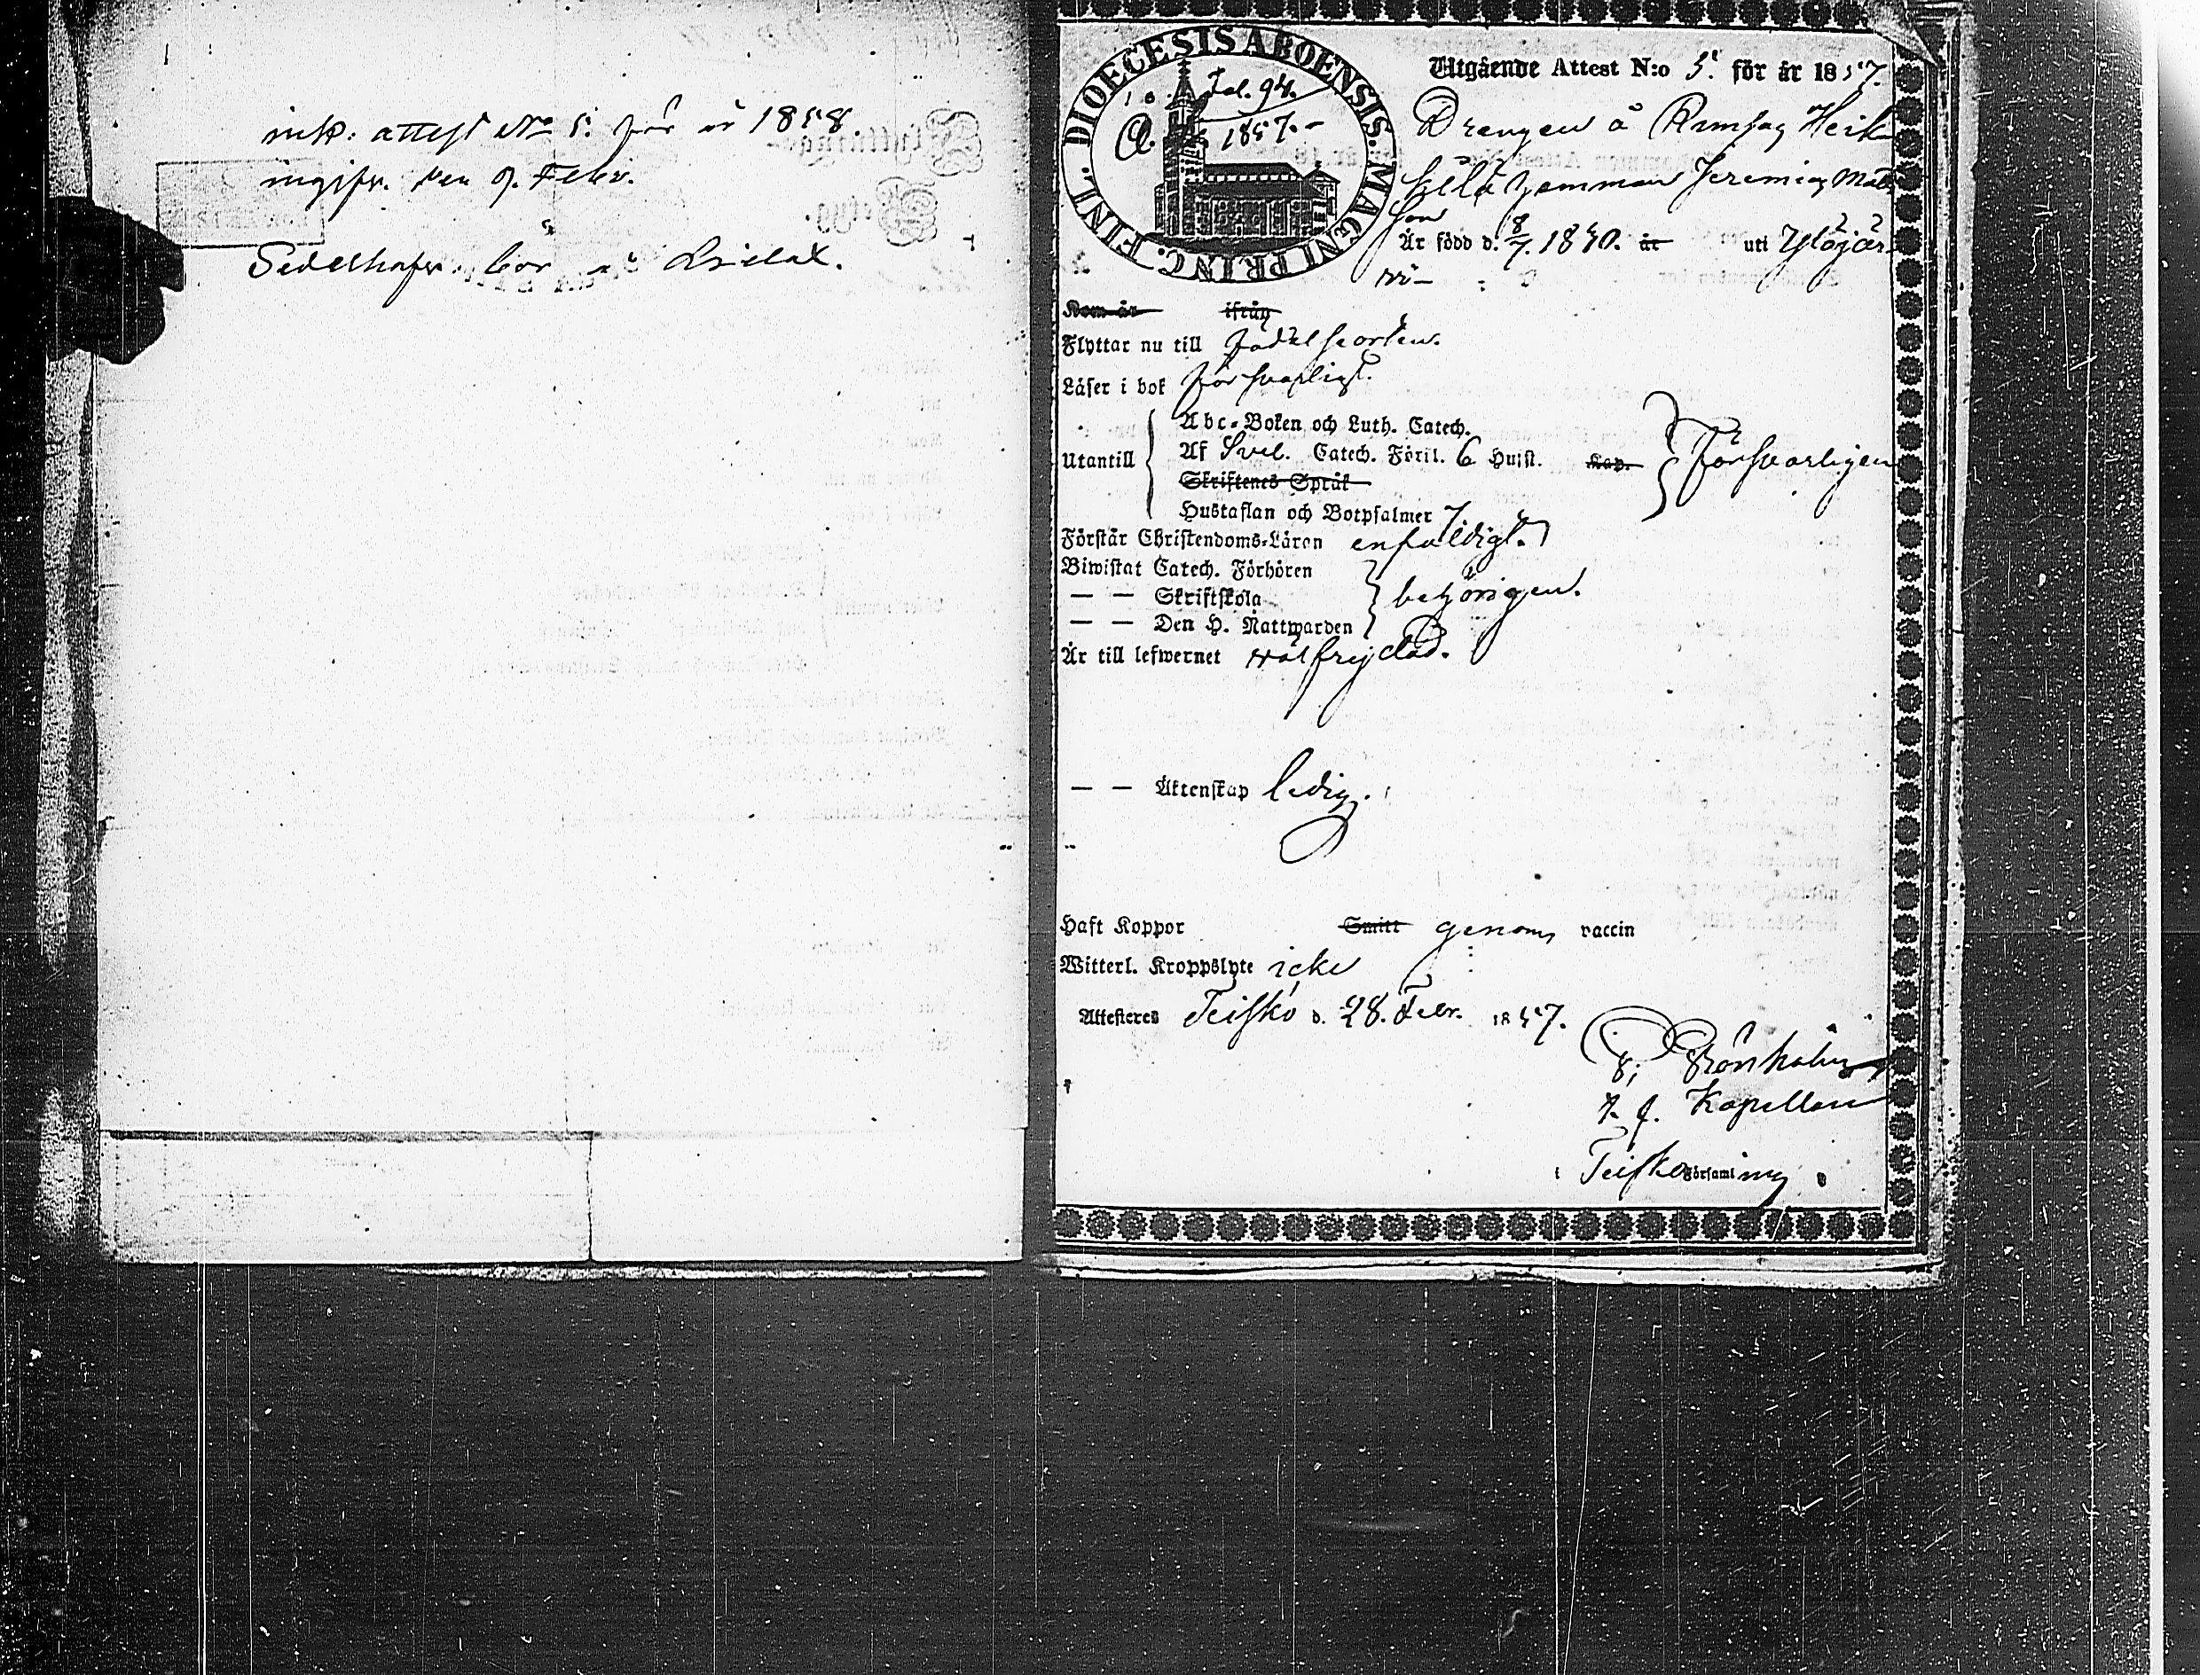 ink: attest No 5. för år 1858.
ingifv. den 9. Febr.
Sedelhafv. bor å
DIOECESIS ABOENSIS. MAGNI PRINC. FINL.
Fol. 94.
1857.
Utgående Attest N:o 5. för år 1857.
Drengen å Rumsas Heik
kilä hemman Jeremias Mats
son
Är född d. 8/7. 1840. år uti Ylöjär
wi
Kom år ifrån
Flyttar nu till födelseorten.
Läser i bok försvarligt.
Abc-Boken och Luth. Catech.
Utantill Af Svel. Catech. Förkl. 6 Hufst. Kap. Försvarligen
Skriftenes Språk
Hustaflan och Botpsalmer 7
Förstår Christendoms-Läran enfaldigt.
Biwistat Catech. Förhören
— — Skriftskola behörigen.
— — Den H. Nattwarden
Är till lefwernet välfrejdad.
— — Äktenskap ledig.
Haft Koppor Smitt genom vaccin
Witterl. Kroppslyte icke
Attesteras Teisko d. 28. Febr. 1857.
Grönholm
t. f. Kapellan
i Teisko Församling